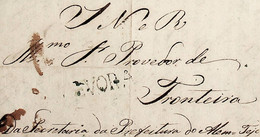 S N e R
Il.mo S.r Provedor de
EVORA
Fronteira
Da Secretaria da Prefeitura do Alem-Tejo